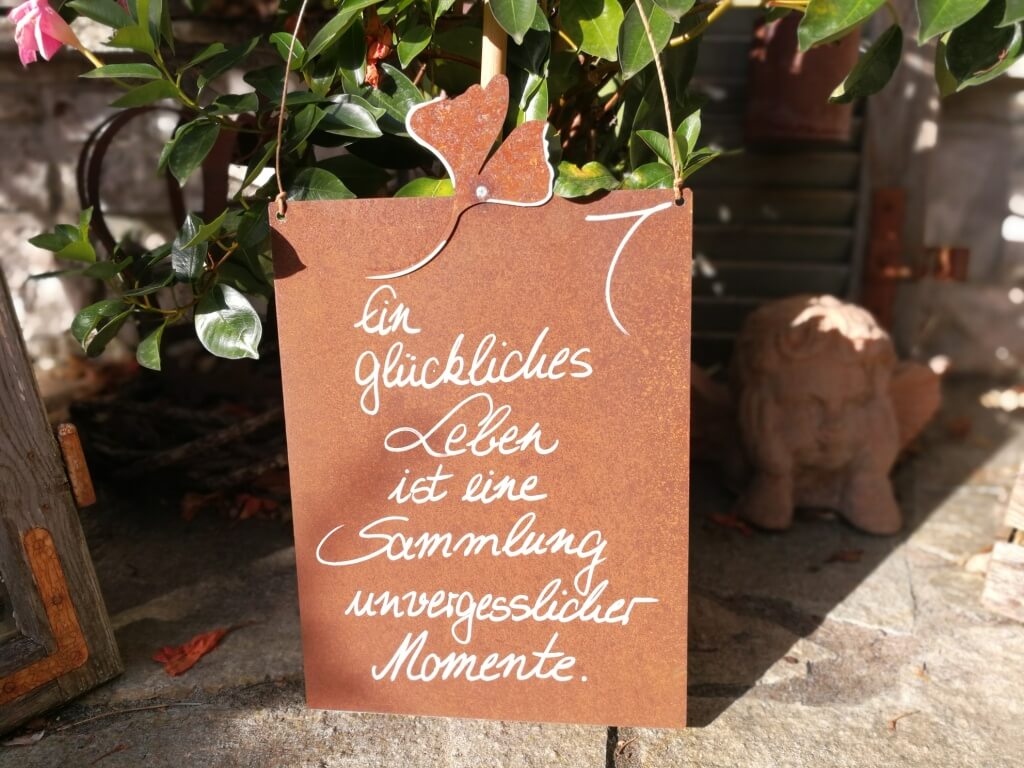 Ein
glückliches
Leben
ist eine
Sammlung
unvergesslicher
Momente.